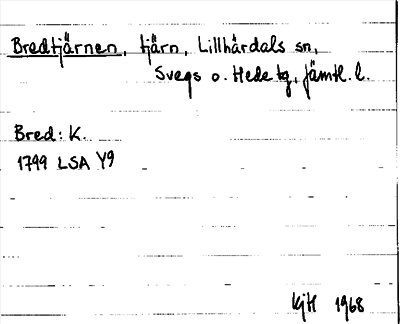 Bredtjärnen, tjärn, Lillhärdals sn,
Svegs o. Hede tg, Jämtl. l.
Bred: K.
1799 LSA Y9
KjH 1968